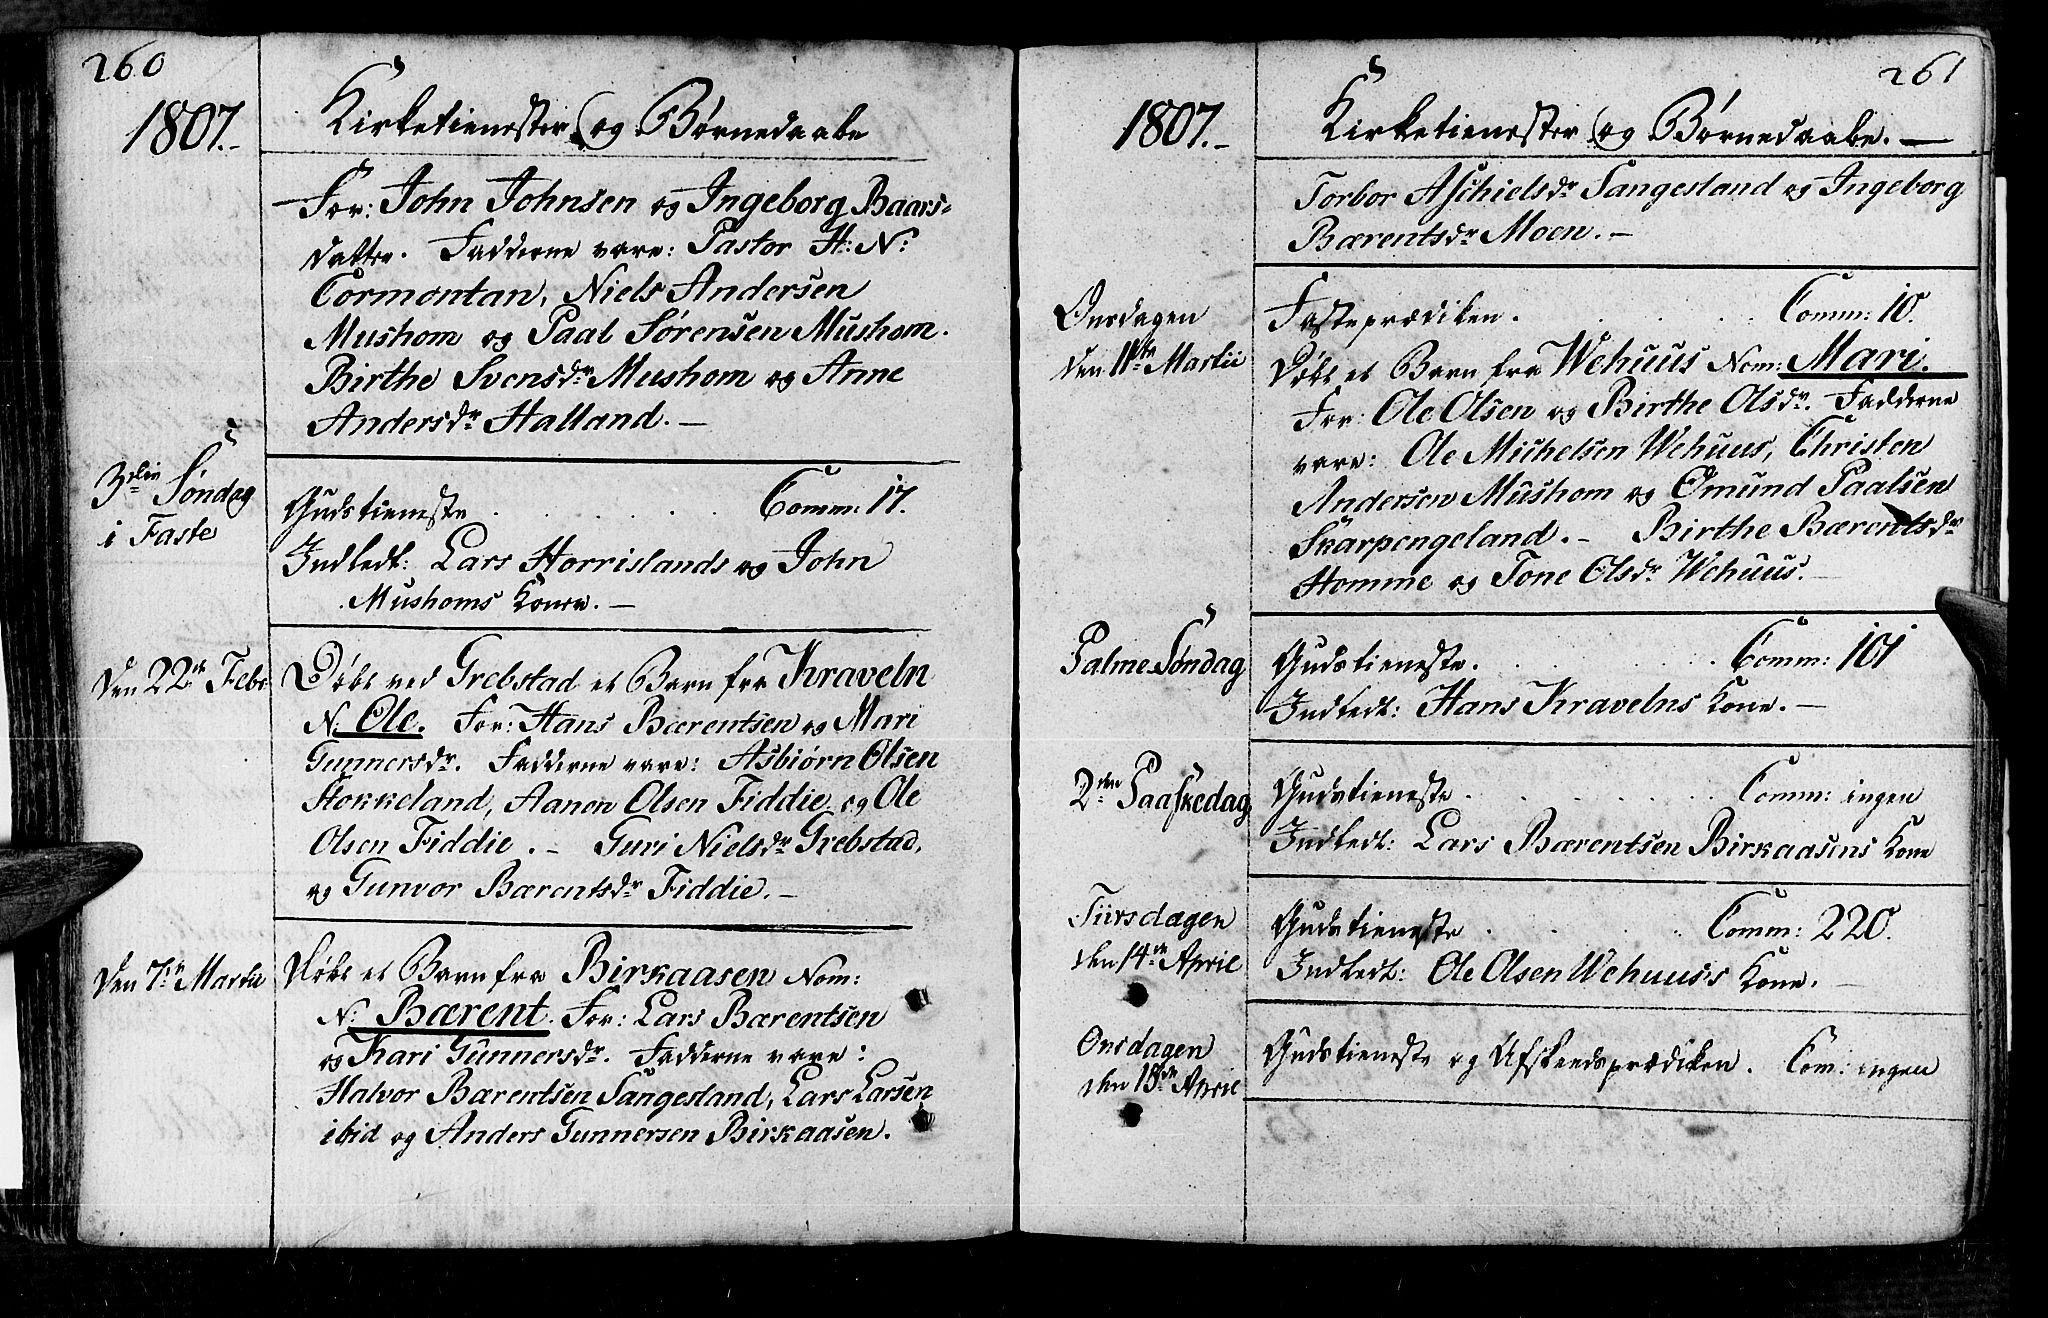 260
1807.
Kirketienester og Børnedaabe
For: John Johnsen og Ingeborg Baars-
datter. Fadderne vare: Pastor H: N:
Cormontan, Niels Andersen
Mushom og Paal Sørensen Mushom.
Birthe Svensdr Mushom og Anne
Andersdr Halland. —
3die Søndag
i Faste
Gudstieneste . . . . . Comm: 17.
Indledt: Lars Horrislands og John
Mushoms Koner. —
Den 22de Febr
Døbt ved Grebstad et Barn fra Kraveln
N: Ole. For: Hans Bærentsen og Mari
Gunnersdr. Fadderne vare: Asbiørn Olsen
Stokkeland, Aanon Olsen Fiddie og Ole
Olsen Fiddie. — Guri Nielsdr Grebstad,
og Gunvor Bærentsdr Fiddie. —
Den 7de Martii
Døbt et Barn fra Birkaasen Nom:
N: Bærent. For: Lars Bærentsen
og Kari Gunnersdr. Fadderne vare:
Halvor Bærentsen Sangesland, Lars Larsen
ibid og Anders Gunnersen Birkaasen.
261
1807.
Kirketienester og Børnedaabe. —
Torbor Aschielsdr Sangesland og Ingeborg
Bærentsdr Moen. —
Onsdagen
den 11te Martii
Fasteprædiken . . . . . Comm: 10.
Døbt et Barn fra Wehuus Nom: Mari.
For: Ole Olsen og Birthe Olsdr. Fadderne
vare: Ole Michelsen Wehuus, Christen
Andersen Mushom og Omund Paalsen
Skarpengeland. — Birthe Bærentsdr
Homme og Tone Olsdr Wehuus. —
Palme Søndag
Gudstieneste . . . . . Comm: 101
Indledt: Hans Kravelns Kone. —
2den Paaskedag
Gudstieneste . . . . . Comm: ingen
Indledt: Lars Bærentsen Birkaasens Kone
Tiirsdagen
den 14de April
Gudstieneste . . . . . Comm: 220.
Indledt: Ole Olsen Wehuus's Kone. —
Onsdagen
den 15de April
Gudstieneste og Afskeedsprædiken. Com: ingen